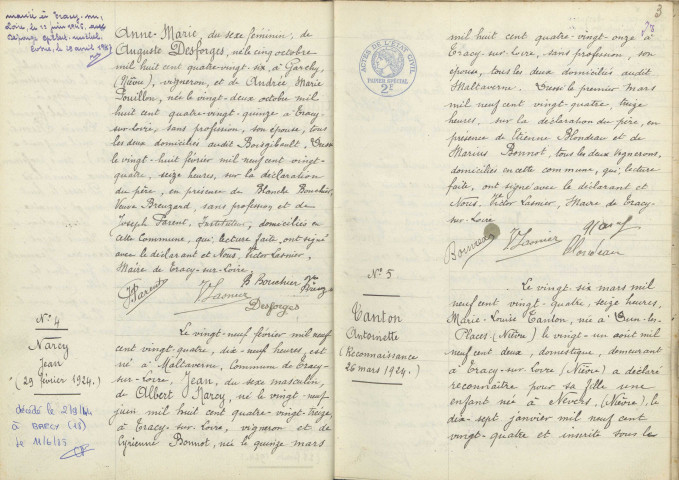 marié à Tracy-sur-
Loire, le 22 juin 1946, avec
Anne-Marie, du sexe féminin, de
Auguste Desforges, né le cinq octobre
mil huit cent quatre-vingt-six, à Garchy
(Nièvre), vigneron, et de Andrée Marie
Pouillon, née le vingt-deux octobre mil
huit cent quatre-vingt-quinze à Tracy-
sur-Loire, sans profession, son épouse, tous
les deux domiciliés audit Boisgibault. Dressé
le vingt-huit février mil neuf cent vingt-
quatre, seize heures, sur la déclaration
du père, en présence de Blanche Bouchier,
Veuve Breuzard, sans profession et de
Joseph Parent, Instituteur, domiciliés en
cette commune, qui, lecture faite, ont signé
avec le déclarant et Nous, Victor Lasnier,
Maire de Tracy-sur-Loire.
J. Parent V Lasnier B Bouchier
Desforges
N° 4
Narcy
Jean
(29 février 1924.)
décédé le
à BARCY
le 11/6/85
Le vingt-neuf février mil neuf
cent vingt-quatre, dix-neuf heures, est
né à Maltaverne, commune de Tracy-
sur-Loire, Jean, du sexe masculin,
de Albert Narcy, né le vingt-neuf
juin mil huit cent quatre-vingt-treize
à Tracy-sur-Loire, vigneron et de
Cyrienne Bonnot, née le quinze mars
3
ACTES DE L'ÉTAT CIVIL
PAPIER SPÉCIAL
2F
mil huit cent quatre-vingt-onze à
Tracy-sur-Loire, sans profession, son
épouse, tous les deux domiciliés audit
Maltaverne. Dressé le premier mars
mil neuf cent vingt-quatre, treize
heures, sur la déclaration du père, en
présence de Etienne Blondeau et de
Marius Bonnot, tous les deux vignerons,
domiciliés en cette commune, qui, lecture
faite, ont signé avec le déclarant et
Nous, Victor Lasnier, Maire de Tracy-
sur-Loire
V Lasnier
Blondeau
N° 5
Tanton
Antoinette
(Reconnaissance
26 mars 1924.)
Le vingt-six mars mil
neuf cent vingt-quatre, seize heures,
Marie-Louise Tanton, née à Ouen-les-
Places (Nièvre) le vingt-un août mil
neuf cent deux, domestique, demeurant
à Tracy-sur-Loire (Nièvre) a déclaré
reconnaître pour sa fille une
enfant née à Nevers (Nièvre), le
dix-sept janvier mil neuf cent
vingt-quatre et inscrite sous le